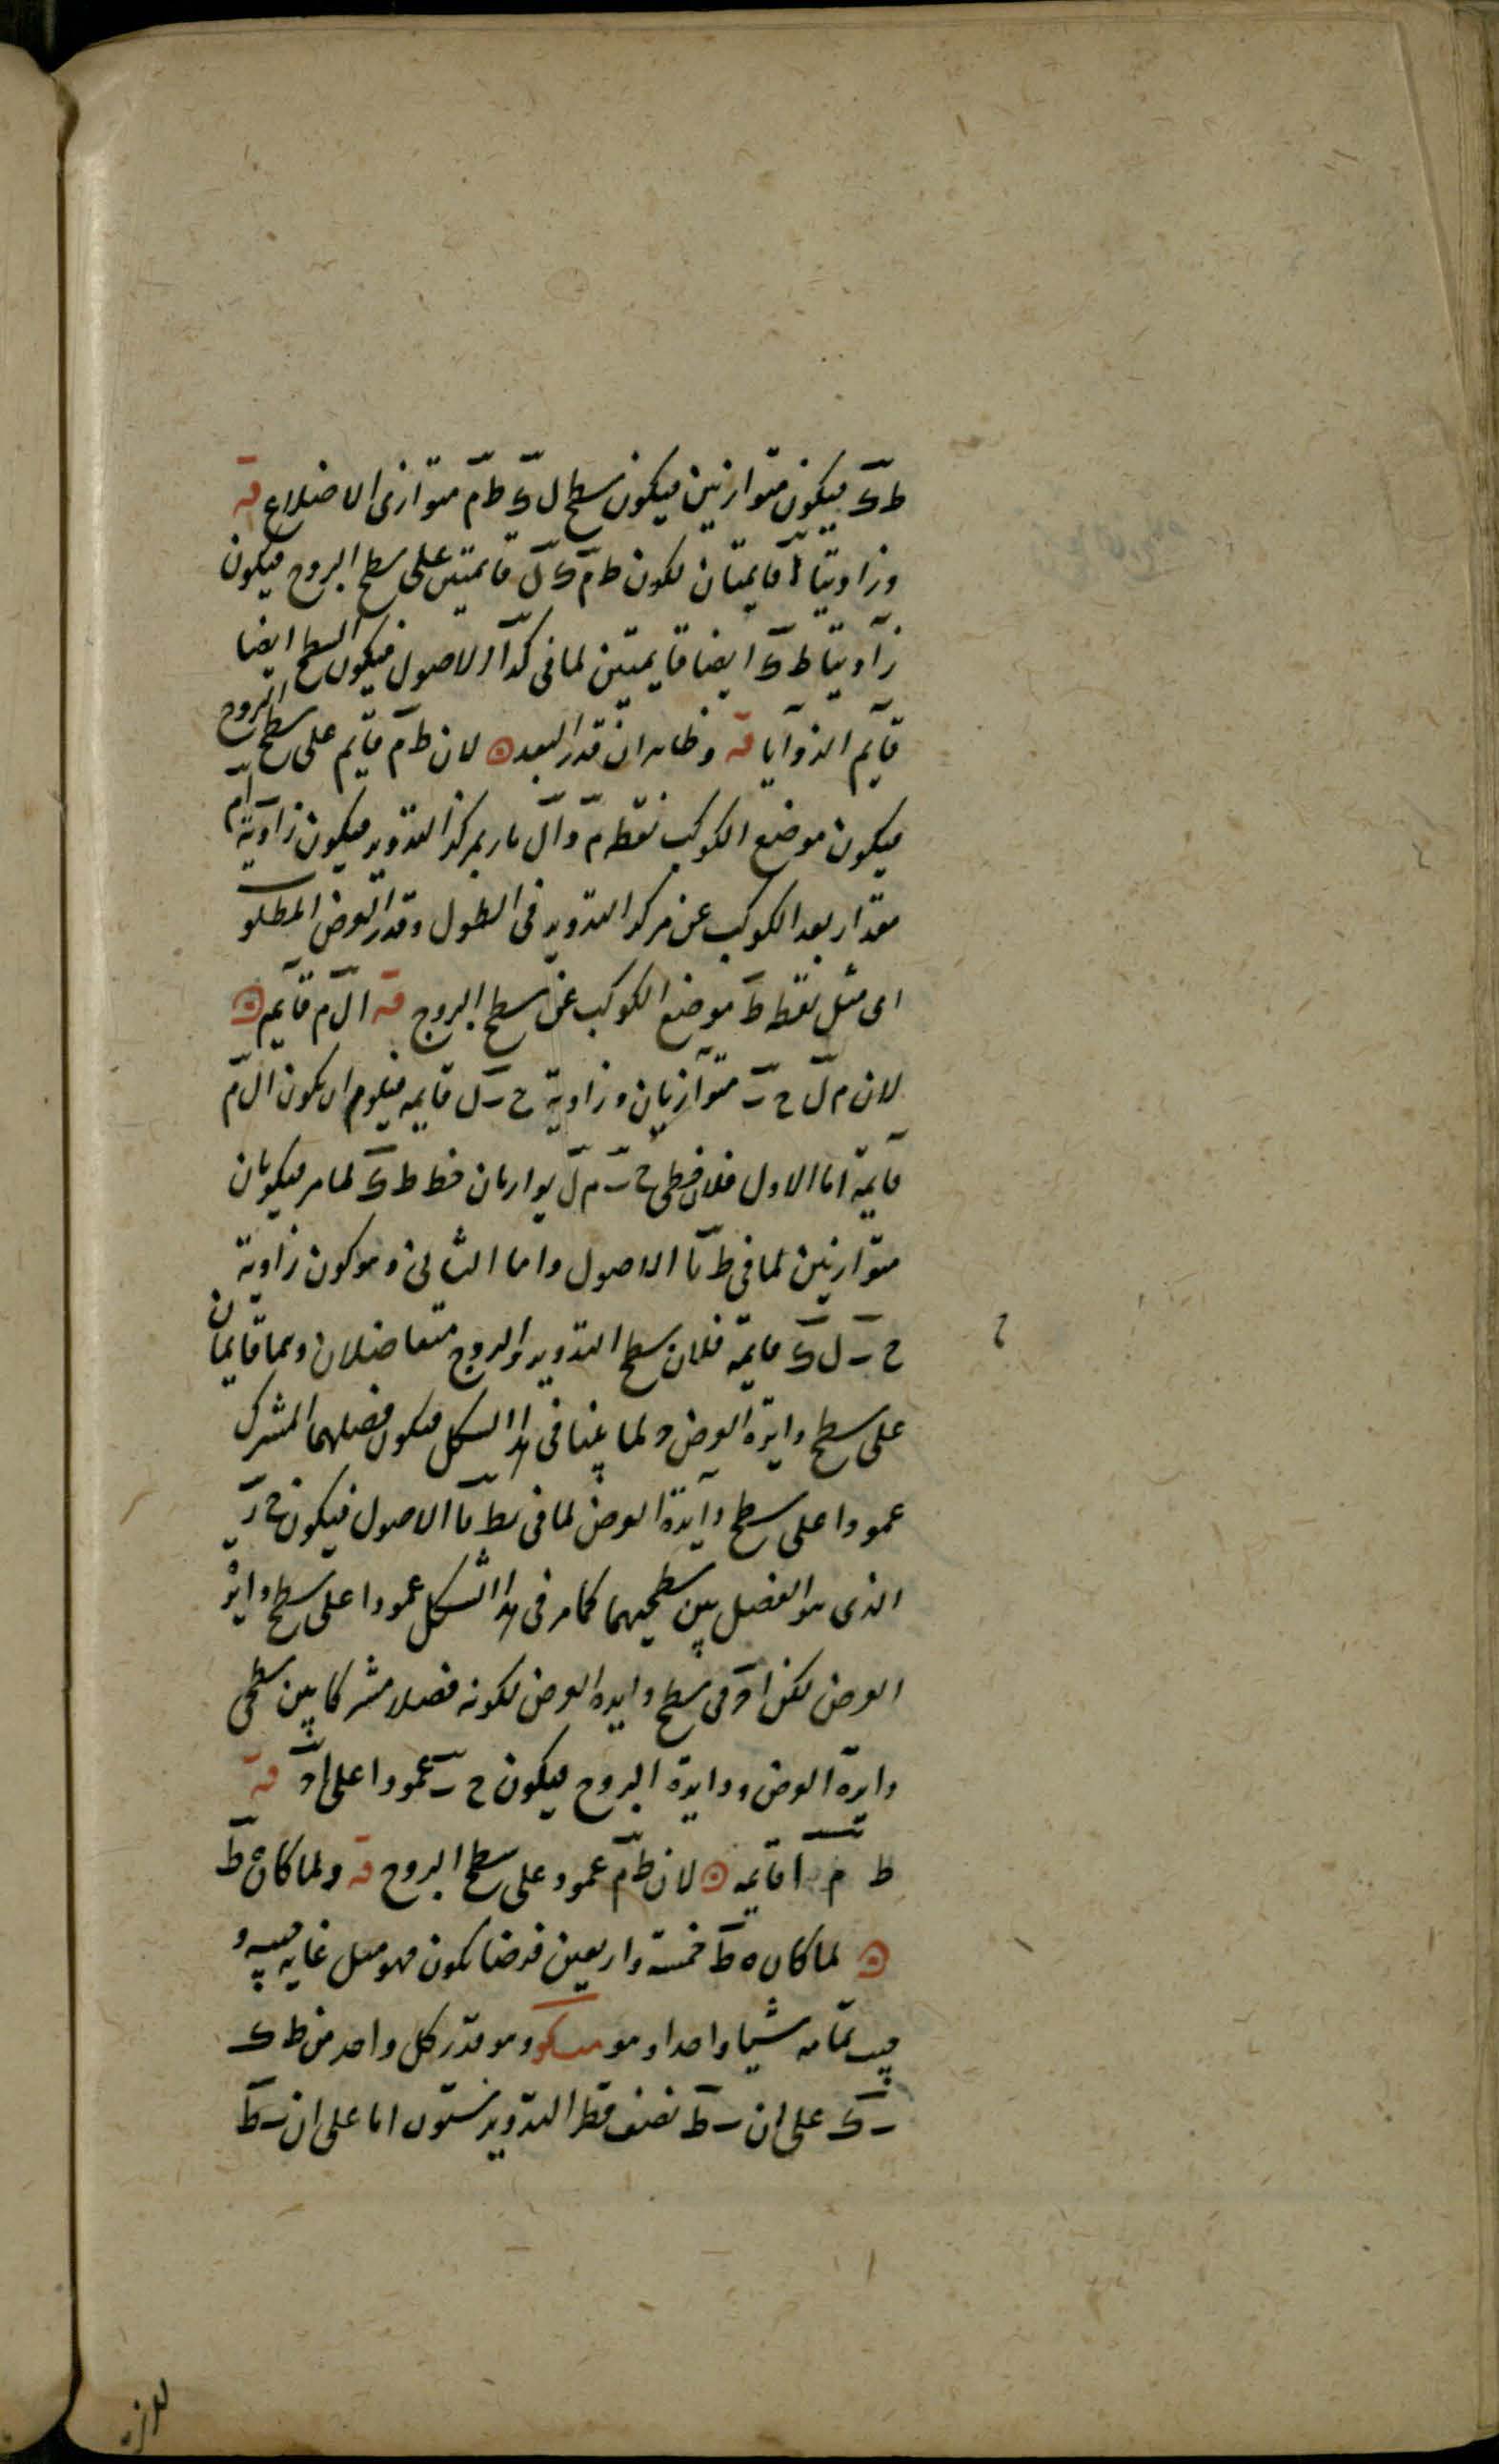 ط ك فيكون متوازيين فيكون سطح ل ك ط م متوازى الاضلاع قه
وزاويتا م ل قايمتان لكون ط م ك ل قايمتين على سطح البروج فيكون
زاويتا ط ك ايضا قايمتين لما فى لد ا الاصول فيكون السطح ايضا
قايم الزوايا قه وظاهر ان قدر البعد لان ط م قايم على سطح البروج
فيكون موضع الكوكب نقطه م و ا ل مار بمركز التدوير فيكون زاوية ل ا م
مقدار بعد الكوكب عن مركز التدوير فى الطول وقدر العرض المطلو
اى ميل نقطه ط موضع الكوكب عن سطح البروج قه ا ل م قايم
لان م ل ح ب متوازيان وزاوية ح ب ل قايمه فيلزم ان يكون ا ل م
قايمة اما الاول فلان خطى ح ب م ل يوازيان خط ط ك لما مر فيكونان
متوازيين لما فى ط يا الاصول واما الثانى وهو كون زاوية
ح ب ل ك قايمة فلان سطح التدوير والبروج متقاضلان وهما قايمان
على سطح دايرة العرض ولما بينا فى هذا الشكل فيكون فصلهما المشترك
عمودا على سطح دايرة العرض لما فى يط يا الاصول فيكون ح ب
الذى هو الفصل بين سطحيهما كما مر فى هذا الشكل عمودا على سطح داير
العرض لكن ا و فى سطح دايره العرض لكونه فصلا مشتركا بين سطحى
دايرة العرض ودايرة البروج فيكون ح ب عمودا على ا و قه
ط م ا قايمه لان ط م عمود على سطح البروج قه ولما كان ه ط
لما كان ه ط خمسة واربعين فرضا يكون فهو مثل غاية جيبه و
جيب تمامه شيا واحدا وهو مب كو وهو قدر كل واحد من ط ك
ب ك على ان ب ط نصف قطر التدوير ستون اما على ان ب ط
ح